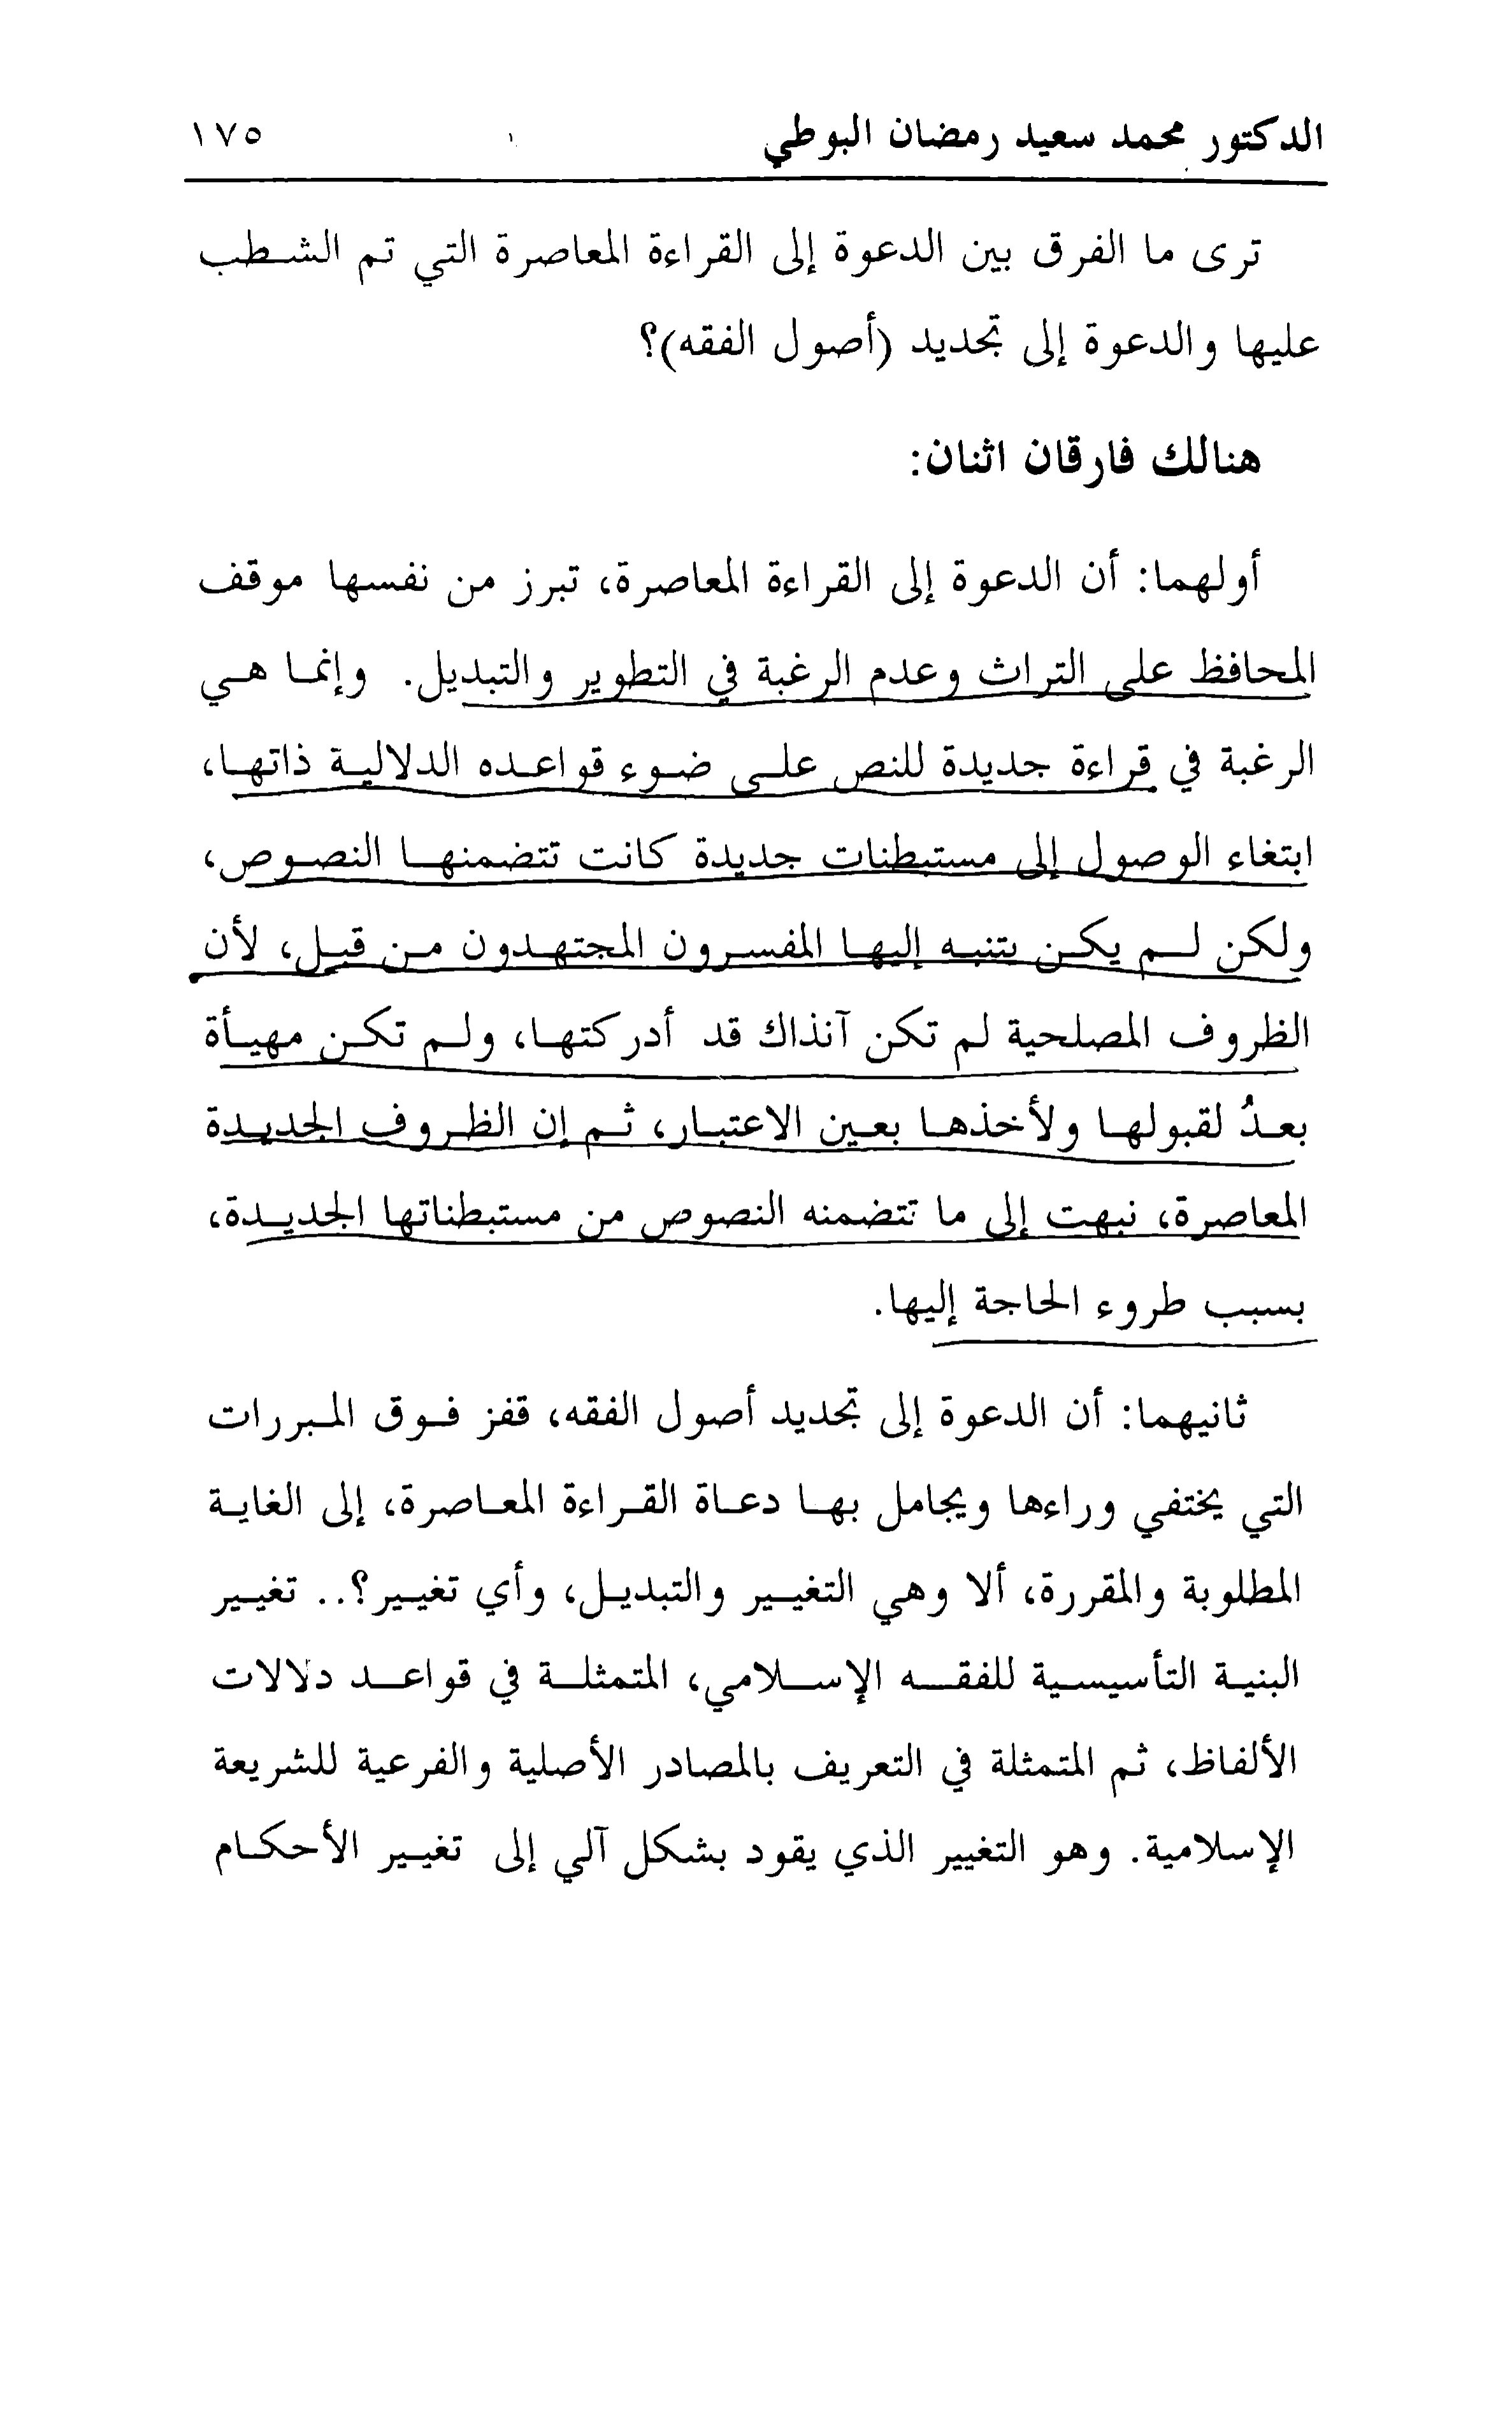 الدكتور محمد سعيد رمضان البوطي ١٧٥
ترى ما الفرق بين الدعوة إلى القراءة المعاصرة التي تم الشطب
عليها والدعوة إلى تجديد (أصول الفقه)؟
هنالك فارقان اثنان:
أولهما: أن الدعوة إلى القراءة المعاصرة، تبرز من نفسها موقف
المحافظ على التراث وعدم الرغبة في التطوير والتبديل. وإنما هي
الرغبة في قراءة جديدة للنص على ضوء قواعده الدلالية ذاتها،
ابتغاء الوصول إلى مستبطنات جديدة كانت تتضمنها النصوص،
ولكن لم يكن يتنبه إليها المفسرون المجتهدون من قبل، لأن
الظروف المصلحية لم تكن آنذاك قد أدركتها، ولم تكن مهيأة
بعدُ لقبولها ولأخذها بعين الاعتبار، ثم إن الظروف الجديدة
المعاصرة، نبهت إلى ما تتضمنه النصوص من مستبطناتها الجديدة،
بسبب طروء الحاجة إليها.
ثانيهما: أن الدعوة إلى تجديد أصول الفقه، قفز فوق المبررات
التي يختفي وراءها ويجامل بها دعاة القراءة المعاصرة، إلى الغاية
المطلوبة والمقررة، ألا وهي التغيير والتبديل، وأي تغيير؟.. تغيير
البنية التأسيسية للفقه الإسلامي، المتمثلة في قواعد دلالات
الألفاظ، ثم المتمثلة في التعريف بالمصادر الأصلية والفرعية للشريعة
الإسلامية. وهو التغيير الذي يقود بشكل آلي إلى تغيير الأحكام